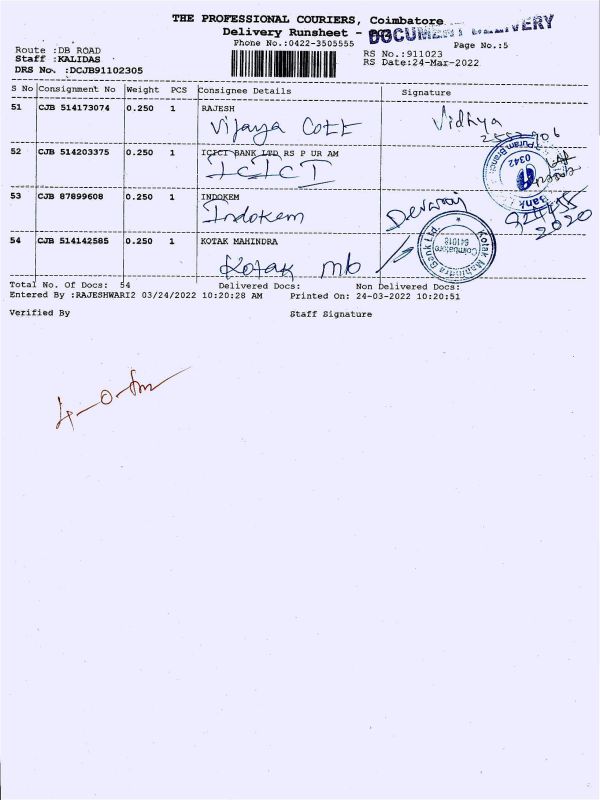 THE PROFESSIONAL COURIERS, Coimbatore
DOCUMENT DELIVERY
Delivery Runsheet -
Phone No.:0422-3505555
Page No.:5
Route :DB ROAD
RS No.:911023
Staff :KALIDAS
RS Date:24-Mar-2022
DRS No. :DCJB91102305
S No Consignment No Weight PCS Consignee Details Signature
51 CJB 514173074 0.250 1 RAJESH
Vijaya Vidhya
52 CJB 514203375 0.250 1 ICICI BANK LTD RS P UR AM
ICICI
0342
53 CJB 87899608 0.250 1 INDOKEM
Indokem
54 CJB 514142585 0.250 1 KOTAK MAHINDRA
Kotak mb
Kotak Mahindra Bank Ltd.
Coimbatore
641018
Total No. Of Docs: 54 Delivered Docs: Non Delivered Docs:
Entered By :RAJESHWARI2 03/24/2022 10:20:28 AM Printed On: 24-03-2022 10:20:51
Verified By Staff Signature